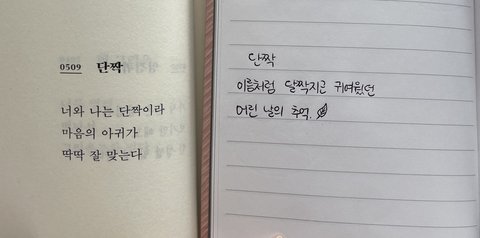 0509 단짝
너와 나는 단짝이라
마음의 아귀가
딱딱 잘 맞는다
단짝
이름처럼 달짝지근 귀여웠던
어린 날의 추억.